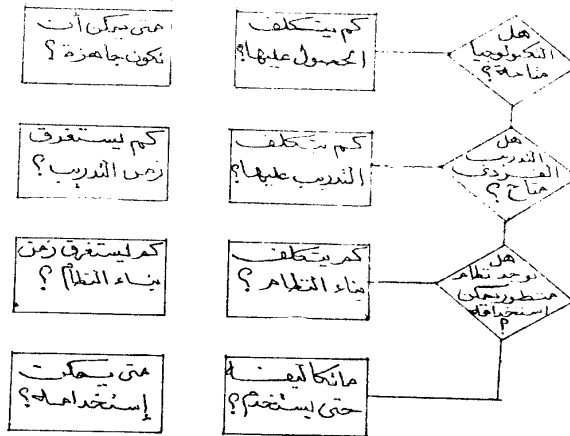 هل
التكنولوجيا
متاحة؟
كم يتكلف
الحصول عليها؟
متى يمكن أن
تكون جاهزة؟
هل
التدريب
الفردى
متاح؟
كم يتكلف
التدريب عليها؟
كم يستغرق
زمن التدريب؟
هل
توجد نظام
متطور يمكن
استخدامه
؟
كم يتكلف
بناء النظام؟
كم يستغرق زمن
بناء النظام؟
ماتكاليفه
حتى يستخدم؟
متى يمكن
إستخدامه؟